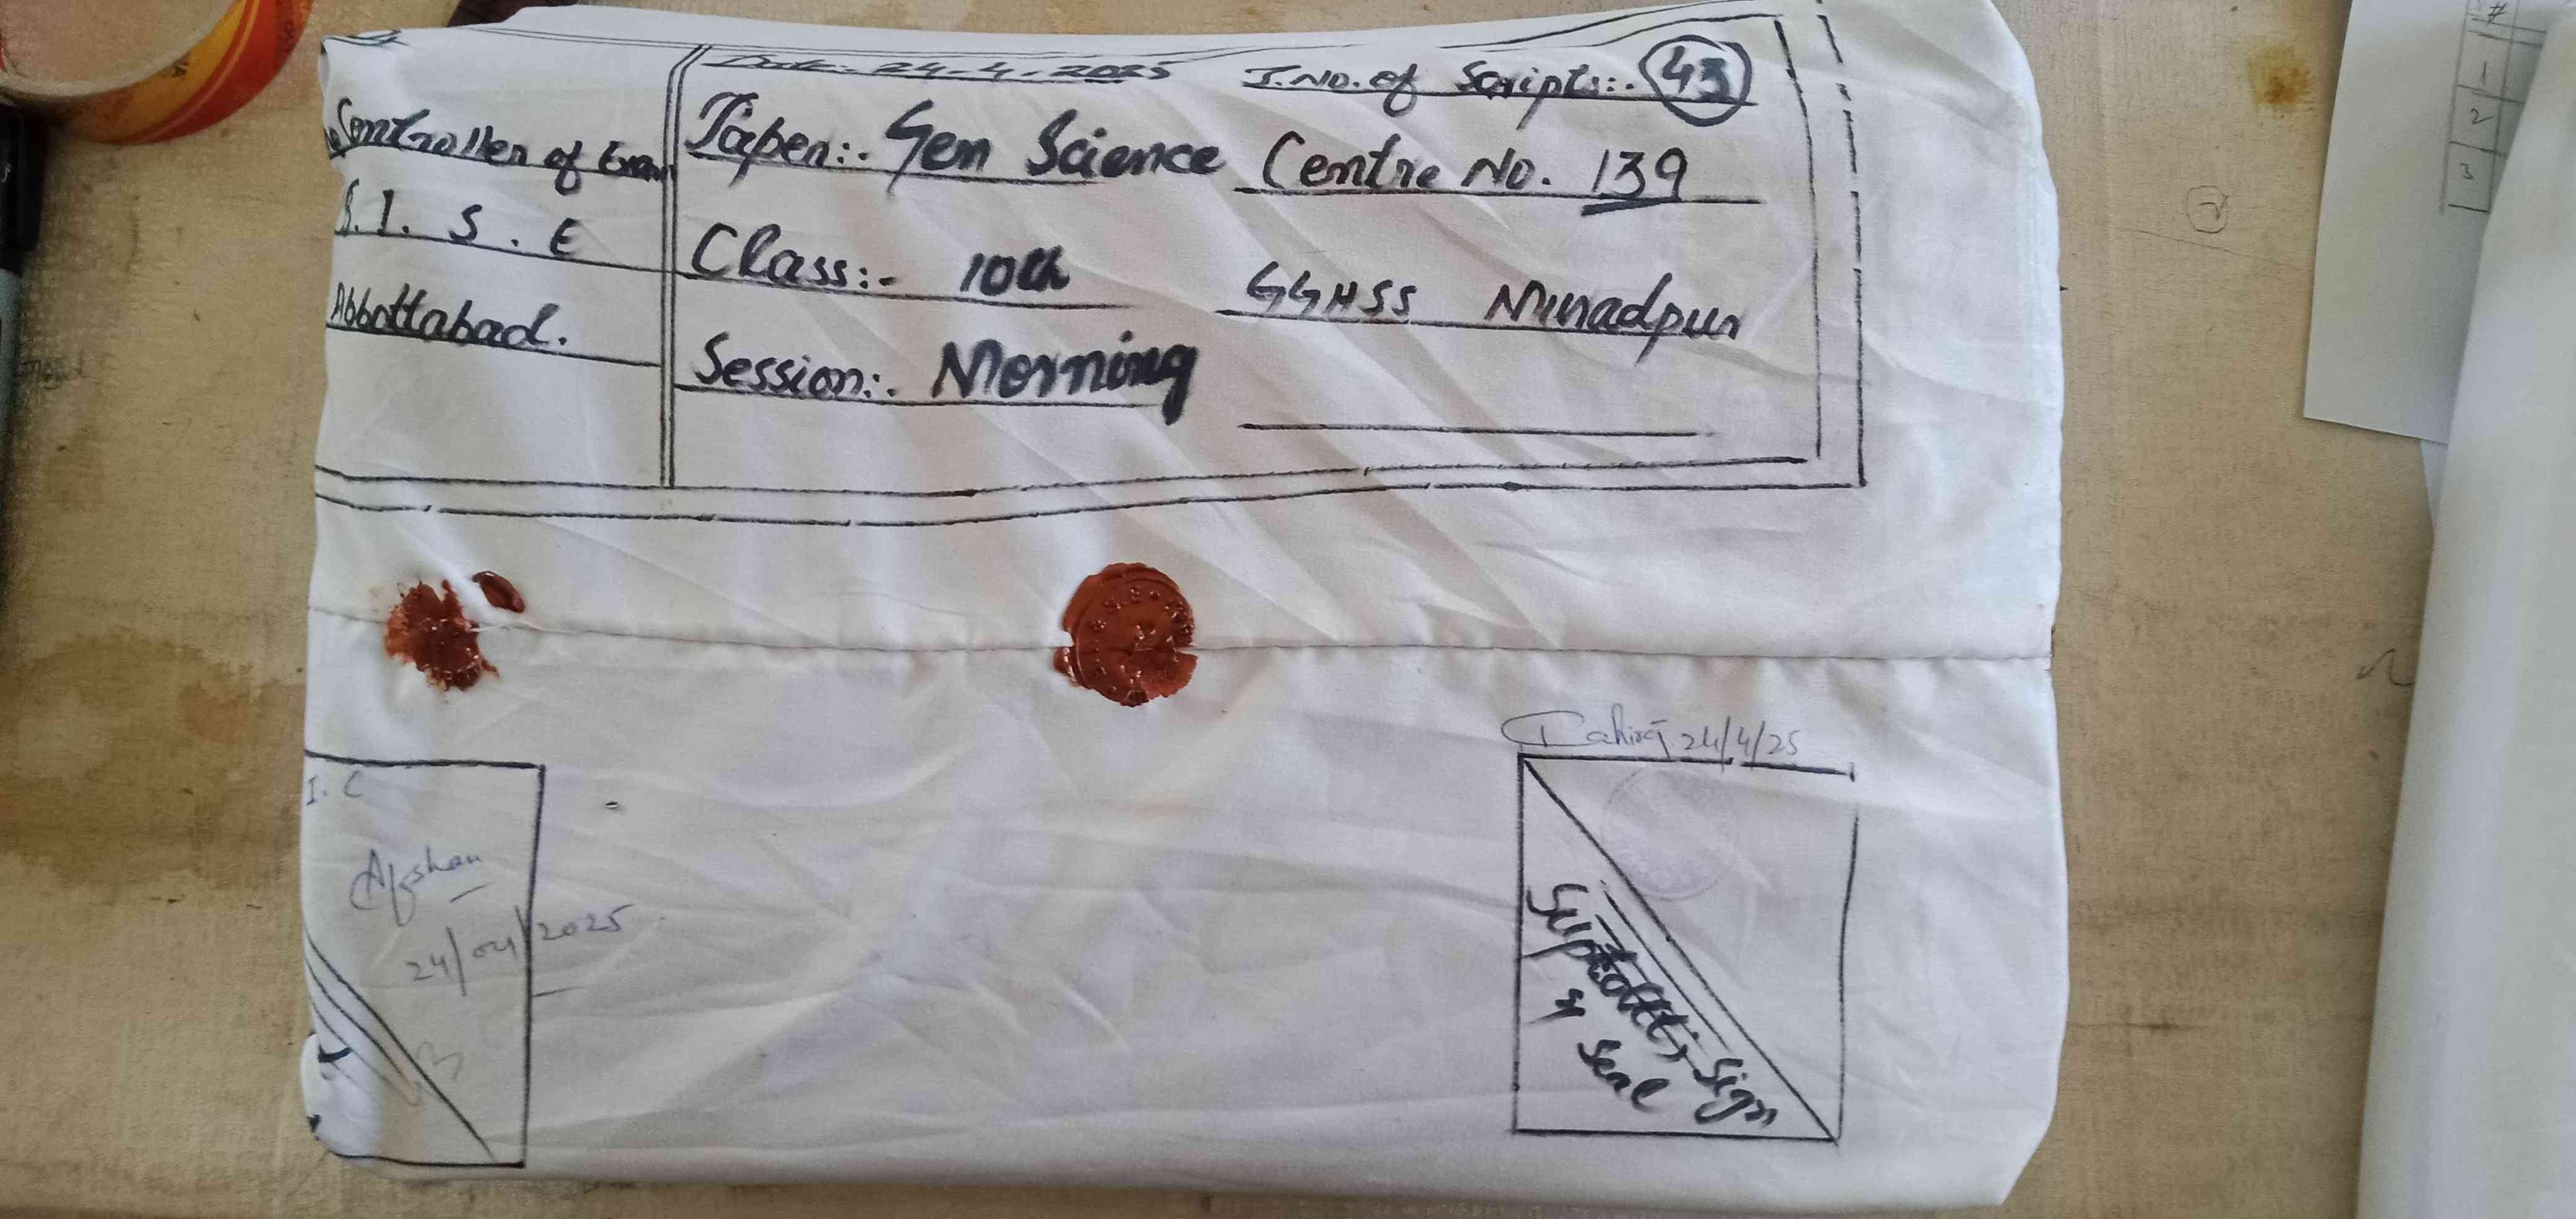 Controller of Exam
B.I.S.E
Abbottabad.
Date:- 24-4-2025
Paper:- Gen Science
Class:- 10th
Session:- Morning
T.No. of Scripts:- 43
Centre No. 139
GGHSS Muradpur
I. C
Afshan
24/04/2025
24/4/25
Supdtt; Sign
Seal
#
1
2
3
2